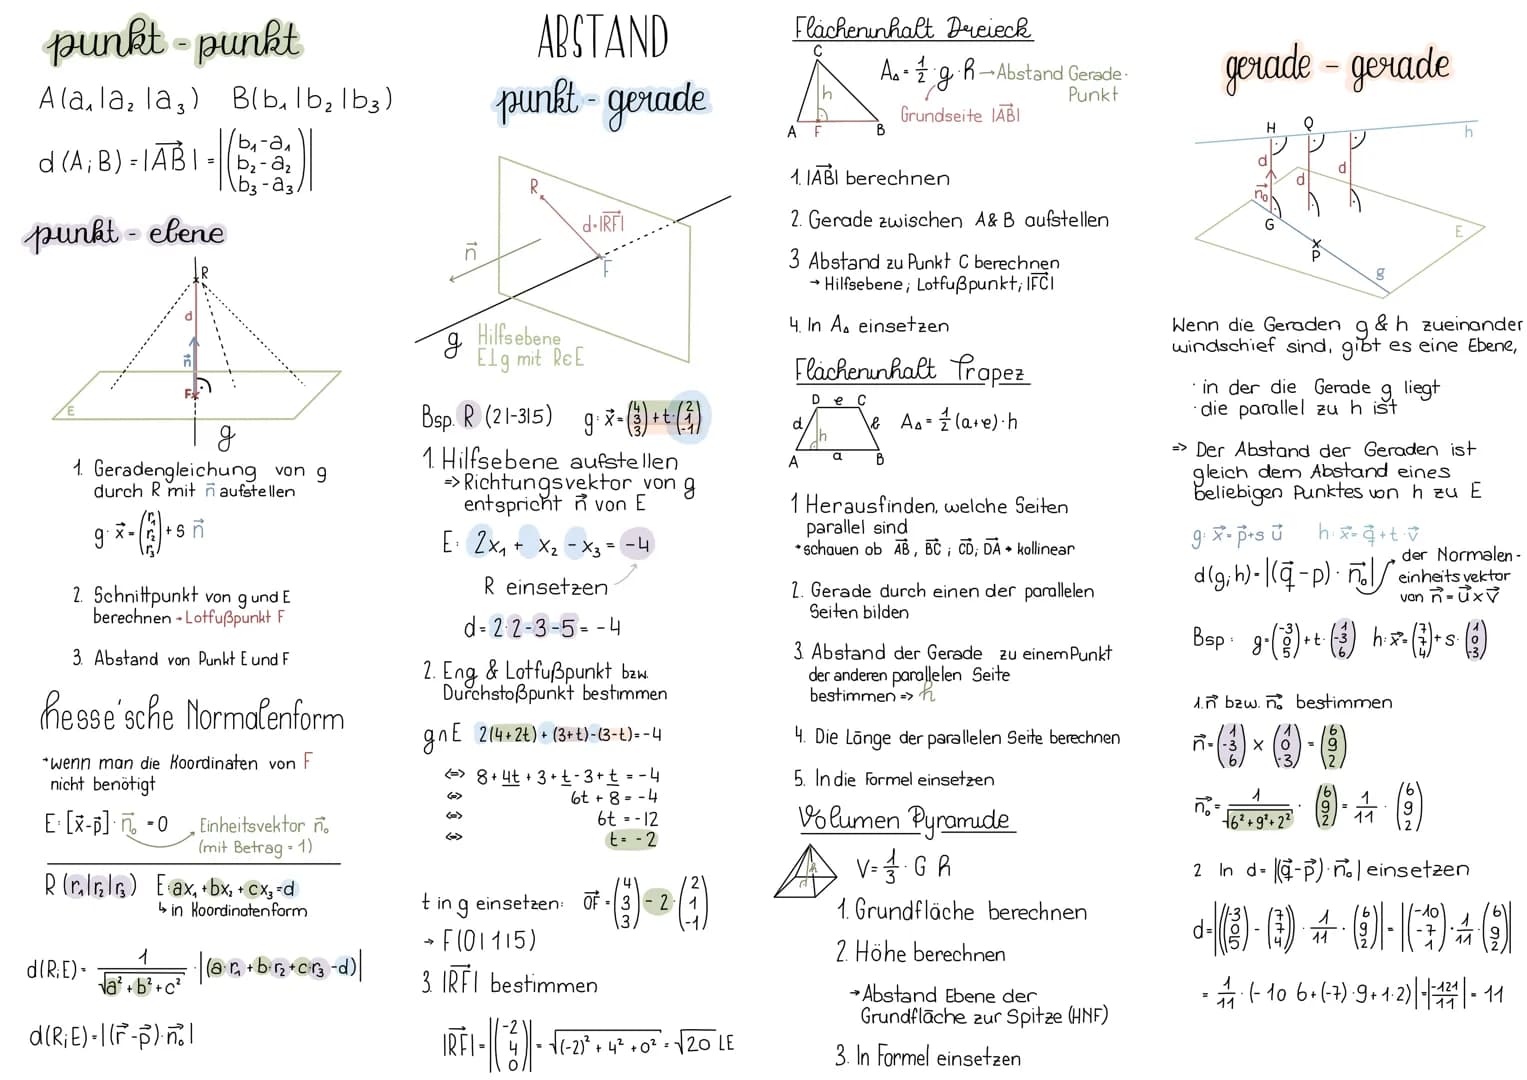 punkt - punkt
A(a₁|a₂|a₃) B(b₁|b₂|b₃)
d(A;B) = |AB→| = |(b₁-a₁ b₂-a₂ b₃-a₃)|
punkt - ebene
R
d
n→
F
E
g
1. Geradengleichung von g
durch R mit n→ aufstellen
g: x→ = (r₁ r₂ r₃) + s n→
2. Schnittpunkt von g und E
berechnen → Lotfußpunkt F
3. Abstand von Punkt E und F
hesse'sche Normalenform
*wenn man die Koordinaten von F
nicht benötigt
E: [x→-p→] · n₀→ = 0
Einheitsvektor n₀→
(mit Betrag = 1)
R(r₁|r₂|r₃) E: ax₁ + bx₂ + cx₃ = d
↳ in Koordinatenform
d(R;E) = 1/√a² + b² + c² · |(a·r₁ + b·r₂ + c·r₃ - d)|
d(R;E) = |(r→ - p→) · n₀→|
ABSTAND
punkt - gerade
R
d=|RF→|
n→
F
g
Hilfsebene
E⊥g mit R∈E
Bsp. R (2|-3|5) g: x→ = (4 3 3) + t·(2 1 -1)
1. Hilfsebene aufstellen
=> Richtungsvektor von g
entspricht n→ von E
E: 2x₁ + x₂ - x₃ = -4
R einsetzen
d = 2·2-3-5 = -4
2. E∩g & Lotfußpunkt bzw.
Durchstoßpunkt bestimmen
g∩E 2(4+2t) + (3+t)-(3-t) = -4
<=> 8 + 4t + 3 + t - 3 + t = -4
<=> 6t + 8 = -4
<=> 6t = -12
<=> t = -2
t in g einsetzen: OF→ = (4 3 3) - 2·(2 1 -1)
→ F(0|1|5)
3. |RF→| bestimmen
|RF→| = |(-2 4 0)| = √(-2)² + 4² + 0² = √20 LE
Flächeninhalt Dreieck
C
h
A F B
A△ = 1/2 · g · h → Abstand Gerade-
Punkt
Grundseite |AB→|
1. |AB→| berechnen
2. Gerade zwischen A & B aufstellen
3 Abstand zu Punkt C berechnen
→ Hilfsebene; Lotfußpunkt; |FC→|
4. In A△ einsetzen
Flächeninhalt Trapez
D e C
d h b
A a B
A△ = 1/2 (a+e)·h
1 Herausfinden, welche Seiten
parallel sind
*schauen ob AB→, BC→; CD→; DA→ kollinear
2. Gerade durch einen der parallelen
Seiten bilden
3. Abstand der Gerade zu einem Punkt
der anderen parallelen Seite
bestimmen => h
4. Die Länge der parallelen Seite berechnen
5. In die Formel einsetzen
Volumen Pyramide
h
V = 1/3 · G h
1. Grundfläche berechnen
2. Höhe berechnen
→ Abstand Ebene der
Grundfläche zur Spitze (HNF)
3. In Formel einsetzen
gerade - gerade
H Q h
d d d
n₀→
G
P
E
g
Wenn die Geraden g & h zueinander
windschief sind, gibt es eine Ebene,
· in der die Gerade g liegt
· die parallel zu h ist
=> Der Abstand der Geraden ist
gleich dem Abstand eines
beliebigen Punktes von h zu E
g: x→ = p→ + s·u→ h: x→ = q→ + t·v→
d(g;h) = |(q→ - p→) · n₀→|
der Normalen-
einheitsvektor
von n→ = u→ x v→
Bsp: g = (-3 0 5) + t·(1 -3 6) h: x→ = (7 7 4) + s·(1 0 -3)
1. n→ bzw. n₀→ bestimmen
n→ = (1 -3 6) x (1 0 -3) = (6 9 2)
n₀→ = 1/√6² + 9² + 2² · (6 9 2) = 1/11 · (6 9 2)
2 In d = |(q→-p→) · n₀→| einsetzen
d = |((-3 0 5) - (7 7 4)) · 1/11 · (6 9 2)| = |(-10 -7 1) · 1/11 · (6 9 2)|
= 1/11 · (-10 6 + (-7)·9 + 1·2)| = |-121/11| = 11